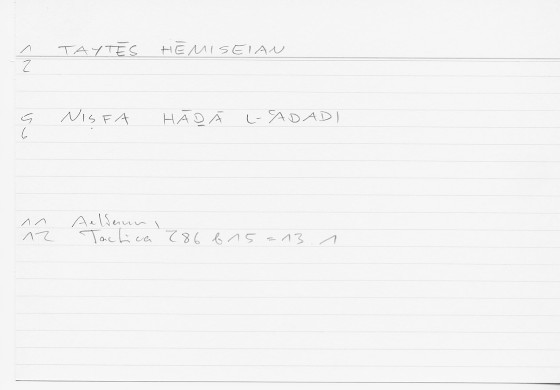 1 TAYTĒS HĒMISEIAN
2
5 NIṢFA HĀḎĀ L-ʿADADI
6
11 Aelianus,
12 Tactica 286 b 15 = 13 1